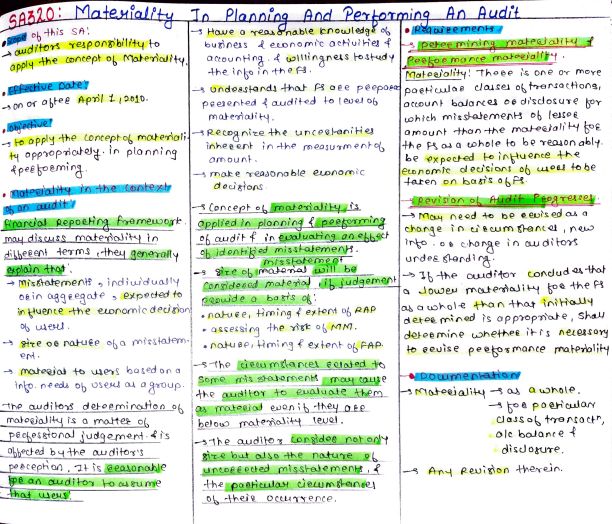 SA320: Materiality In Planning And Performing An Audit
• Scope of this SA:
→ auditors responsibility to
apply the concept of Materiality.
• Effective Date:
→ on or after April 1, 2010.
• Objective:
→ to apply the concept of materiali-
ty appropriately in planning
& performing.
• Materiality in the context
of an audit:
Financial Reporting Framework
may discuss materiality in
different terms, they generally
explain that:
→ Misstatements, individually
or in aggregate, expected to
influence the economic decision
of users.
→ size or nature of a misstatem-
ent.
→ material to users based on a
info. needs of users as a group.
The auditors determination of
materiality is a matter of
professional judgement & is
affected by the auditor's
perception. It is reasonable
for an auditor to assume
that users:
→ Have a reasonable knowledge of
business & economic activities &
accounting & willingness to study
the info in the FS.
→ understands that FS are prepared
presented & audited to level of
materiality.
→ Recognize the uncertainties
inherent in the measurment of
amount.
→ make reasonable economic
decisions.
→ Concept of materiality is
applied in planning & performing
of audit & in evaluating an effect
of identified misstatements.
misstatement
→ size of material will be
considered material, if judgement
provide a basis of:
• nature, timing & extent of RAP
• assessing the risk of MM.
• nature, timing & extent of FAP.
→ The circumstances related to
some misstatements may cause
the auditor to evaluate them
as material even if they are
below materiality level.
→ The auditor consider not only
size but also the nature of
uncorrected misstatements, &
the particular circumstances
of their occurrence.
• Requirements:
→ Determining materiality &
Performance materiality.
Materiality: There is one or more
particular classes of transactions,
account balances or disclosure for
which misstatements of lesser
amount than the materiality for
the FS as a whole to be reasonably
be expected to influence the
economic decisions of users to be
taken on basis of FS.
→ Revision of Audit Progresses
→ May need to be revised as a
change in circumstances, new
info. or change in auditors
understanding.
→ If the auditor concludes that
a lower materiality for the FS
as a whole than that initially
determined is appropriate, shall
determine whether it is necessary
to revise performance materiality
• Documentation
→ Materiality → as a whole.
→ for particular
class of transactn,
a/c balance &
disclosure.
→ Any Revision therein.